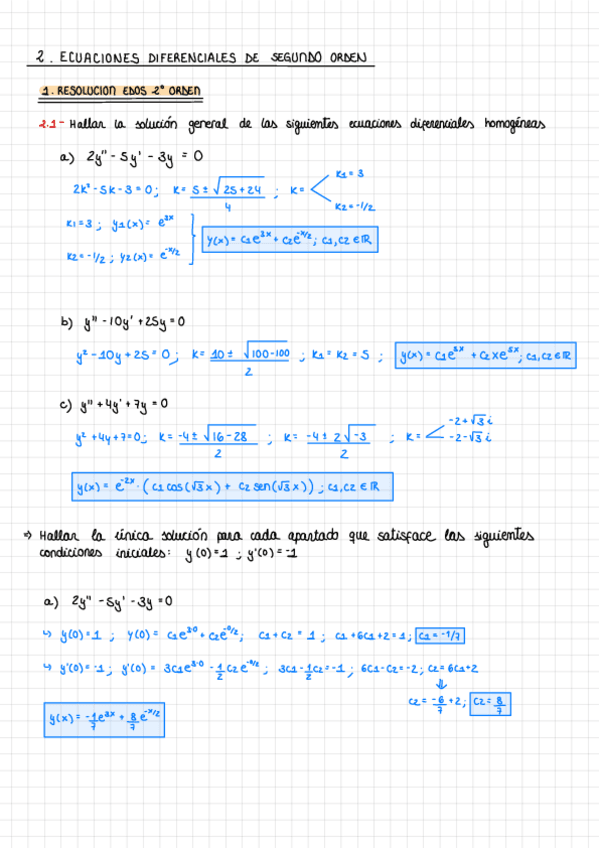 2. ECUACIONES DIFERENCIALES DE SEGUNDO ORDEN
1. RESOLUCION EDOS 2º ORDEN
2.1- Hallar la solución general de las siguientes ecuaciones diferenciales homogéneas
a) 2y'' - 5y' - 3y = 0
2k² - 5k - 3 = 0 ; k = (5 ± √(25+24))/4 ; k = k1 = 3
k2 = -1/2
k1 = 3 ; y1(x) = e^3x
k2 = -1/2 ; y2(x) = e^-x/2
y(x) = c1e^3x + c2e^-x/2 ; c1, c2 ∈ ℝ
b) y'' - 10y' + 25y = 0
y² - 10y + 25 = 0 ; k = (10 ± √(100-100))/2 ; k1 = k2 = 5 ; y(x) = c1e^5x + c2xe^5x ; c1, c2 ∈ ℝ
c) y'' + 4y' + 7y = 0
y² + 4y + 7 = 0 ; k = (-4 ± √(16-28))/2 ; k = (-4 ± 2√-3)/2 ; k = -2+√3 i
-2-√3 i
y(x) = e^-2x · (c1 cos(√3x) + c2 sen(√3x)) ; c1, c2 ∈ ℝ
⇒ Hallar la única solución para cada apartado que satisface las siguientes
condiciones iniciales: y(0)=1 ; y'(0)=-1
a) 2y'' - 5y' - 3y = 0
↳ y(0) = 1 ; y(0) = c1e^3·0 + c2e^-0/2 ; c1 + c2 = 1 ; c1 + 6c1 + 2 = 1 ; c1 = -1/7
↳ y'(0) = -1 ; y'(0) = 3c1e^3·0 - 1/2 c2e^-0/2 ; 3c1 - 1/2 c2 = -1 ; 6c1 - c2 = -2 ; c2 = 6c1 + 2
⇓
c2 = -6/7 + 2 ; c2 = 8/7
y(x) = -1/7 e^3x + 8/7 e^-x/2